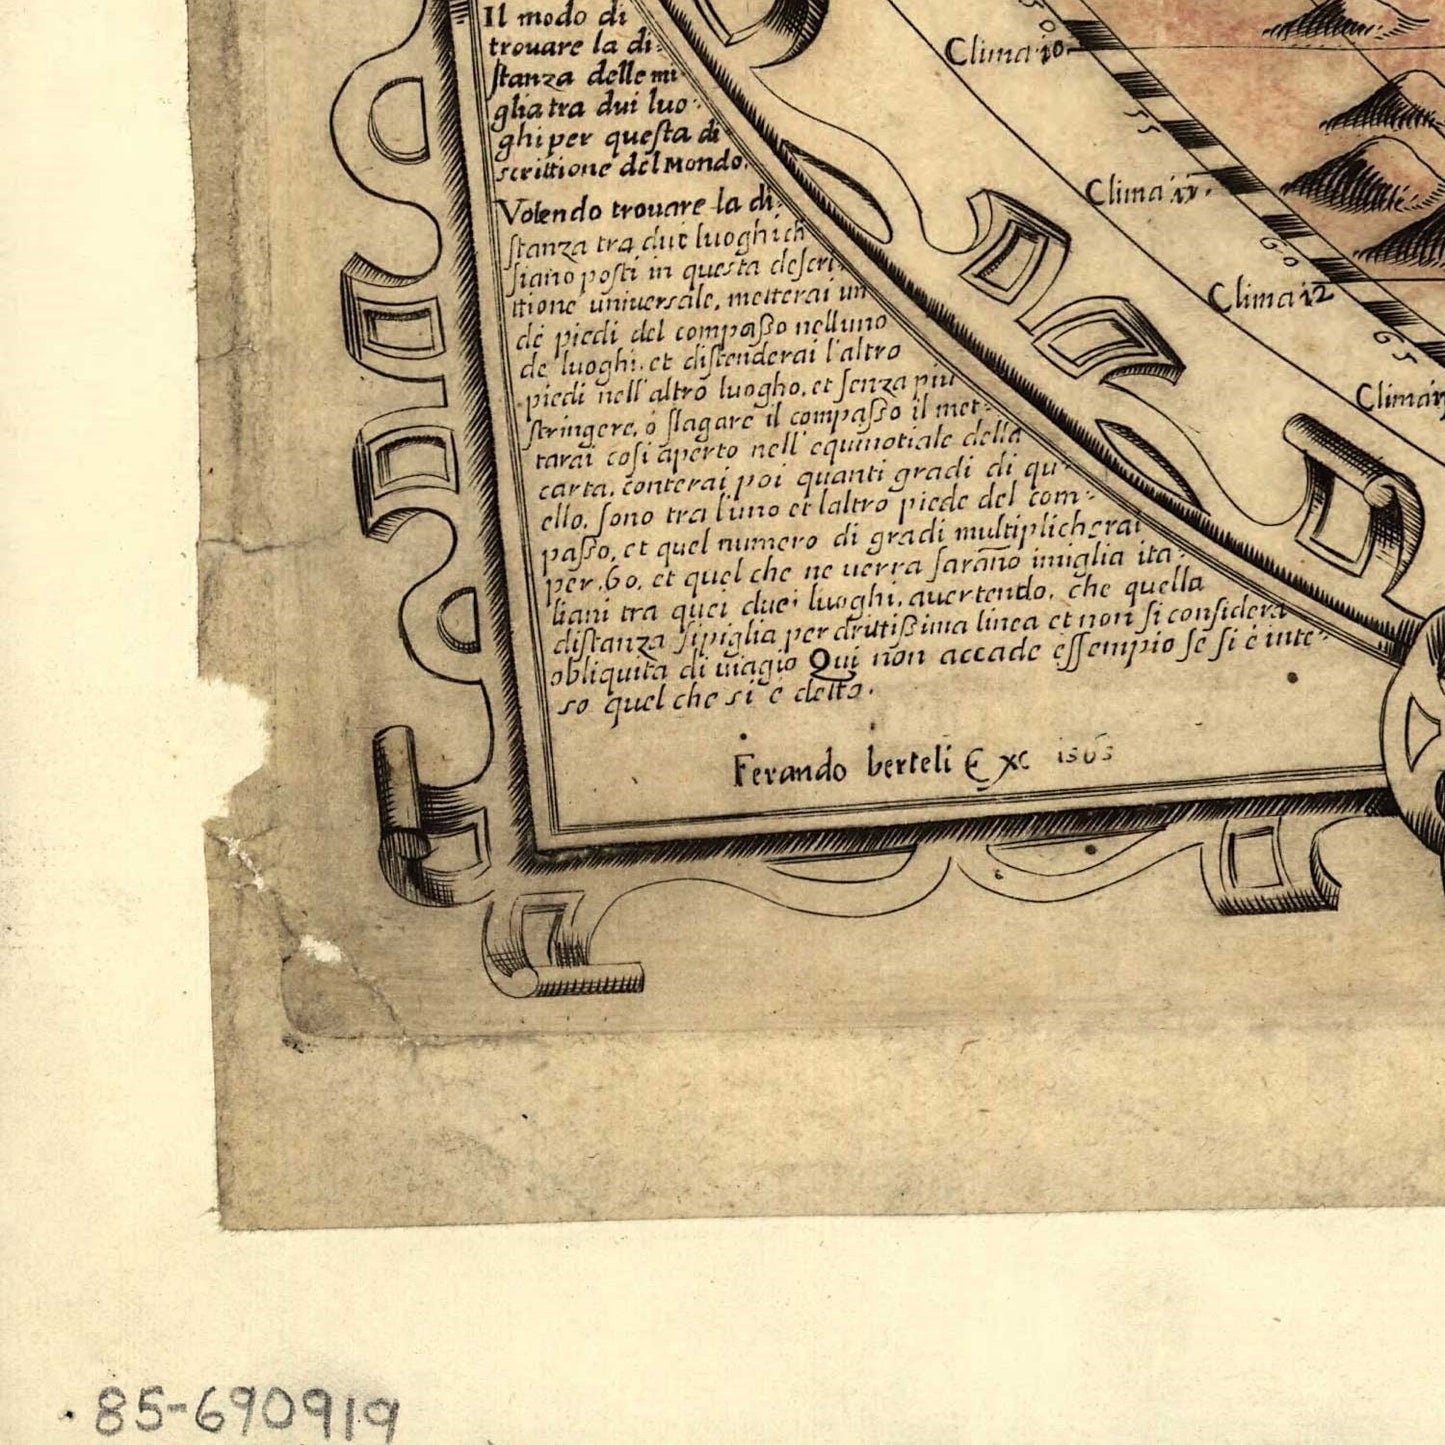 Il modo di
trouare la di:
stanza delle mi
glia tra dui luo:
ghi per questa di
scrittione del Mondo.
Volendo trouare la di:
stanza tra due luoghi ch
siano posti in questa descri:
ttione uniuersale, metterai un
de piedi del compaßo nelluno
de luoghi. et distenderai l'altro
piedi nell'altro luogho. et senza piu
stringere, o slagare il compaßo il met:
tarai cosi aperto nell' equinotiale della
carta. conterai poi quanti gradi di qu:
ello. sono tra l'uno et laltro piede del com:
paßo, et quel numero di gradi multiplicherai
per .60. et quel che ne uerra saranno imiglia ita:
liani tra quei duei luoghi. auertendo. che quella
distanza sipiglia per drittißima linea et non si considera
obliquita di uiagio Qui non accade essempio se si e inte:
so quel che si e detto.
Ferando berteli Exc 1563
50
Clima 10
55
Clima 11.
60
Clima 12
65
Clima
85-690919